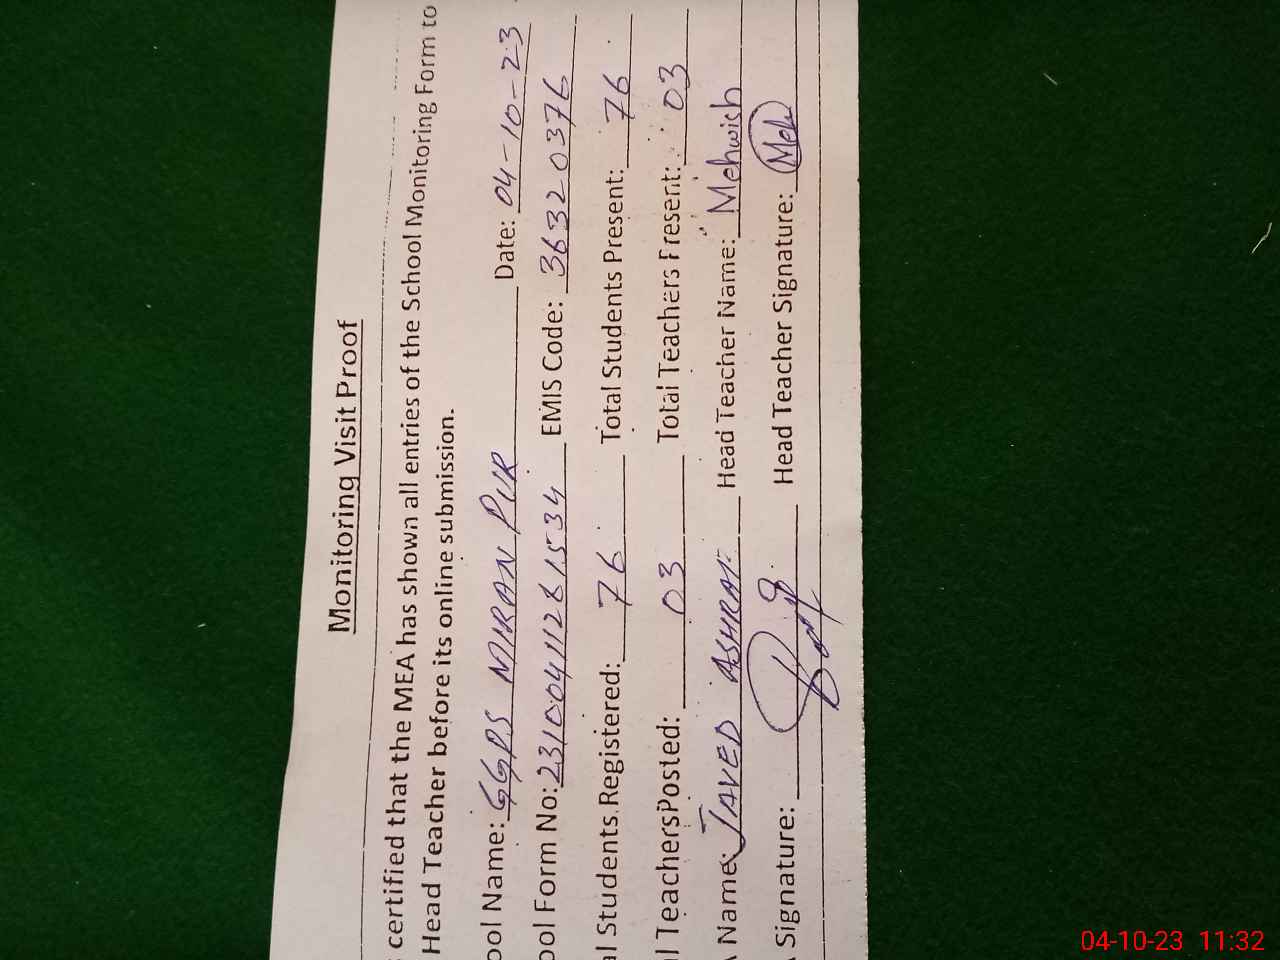 Monitoring Visit Proof
certified that the MEA has shown all entries of the School Monitoring Form to
Head Teacher before its online submission.
ool Name: GGPS MIRAN PUR Date: 04-10-23
ool Form No: 23100411281534 EMIS Code: 36320376
al Students Registered: 76 Total Students Present: 76
l Teachers Posted: 03 Total Teachers Present: 03
Name: JAVED ASHRAF Head Teacher Name: Mehwish
Signature: Head Teacher Signature: Meh
04-10-23 11:32